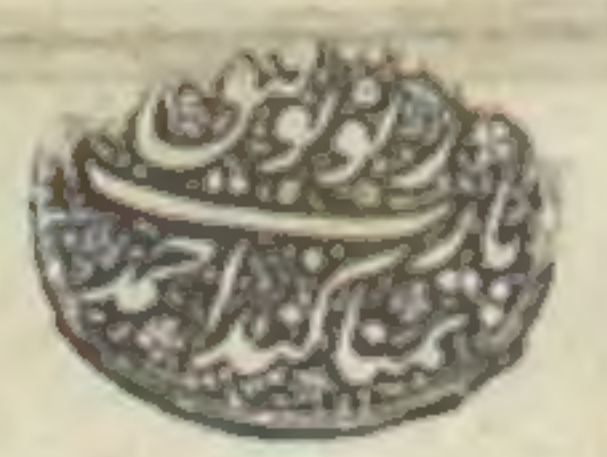 یا رب ز تو توفیق
تمنا کند احمد